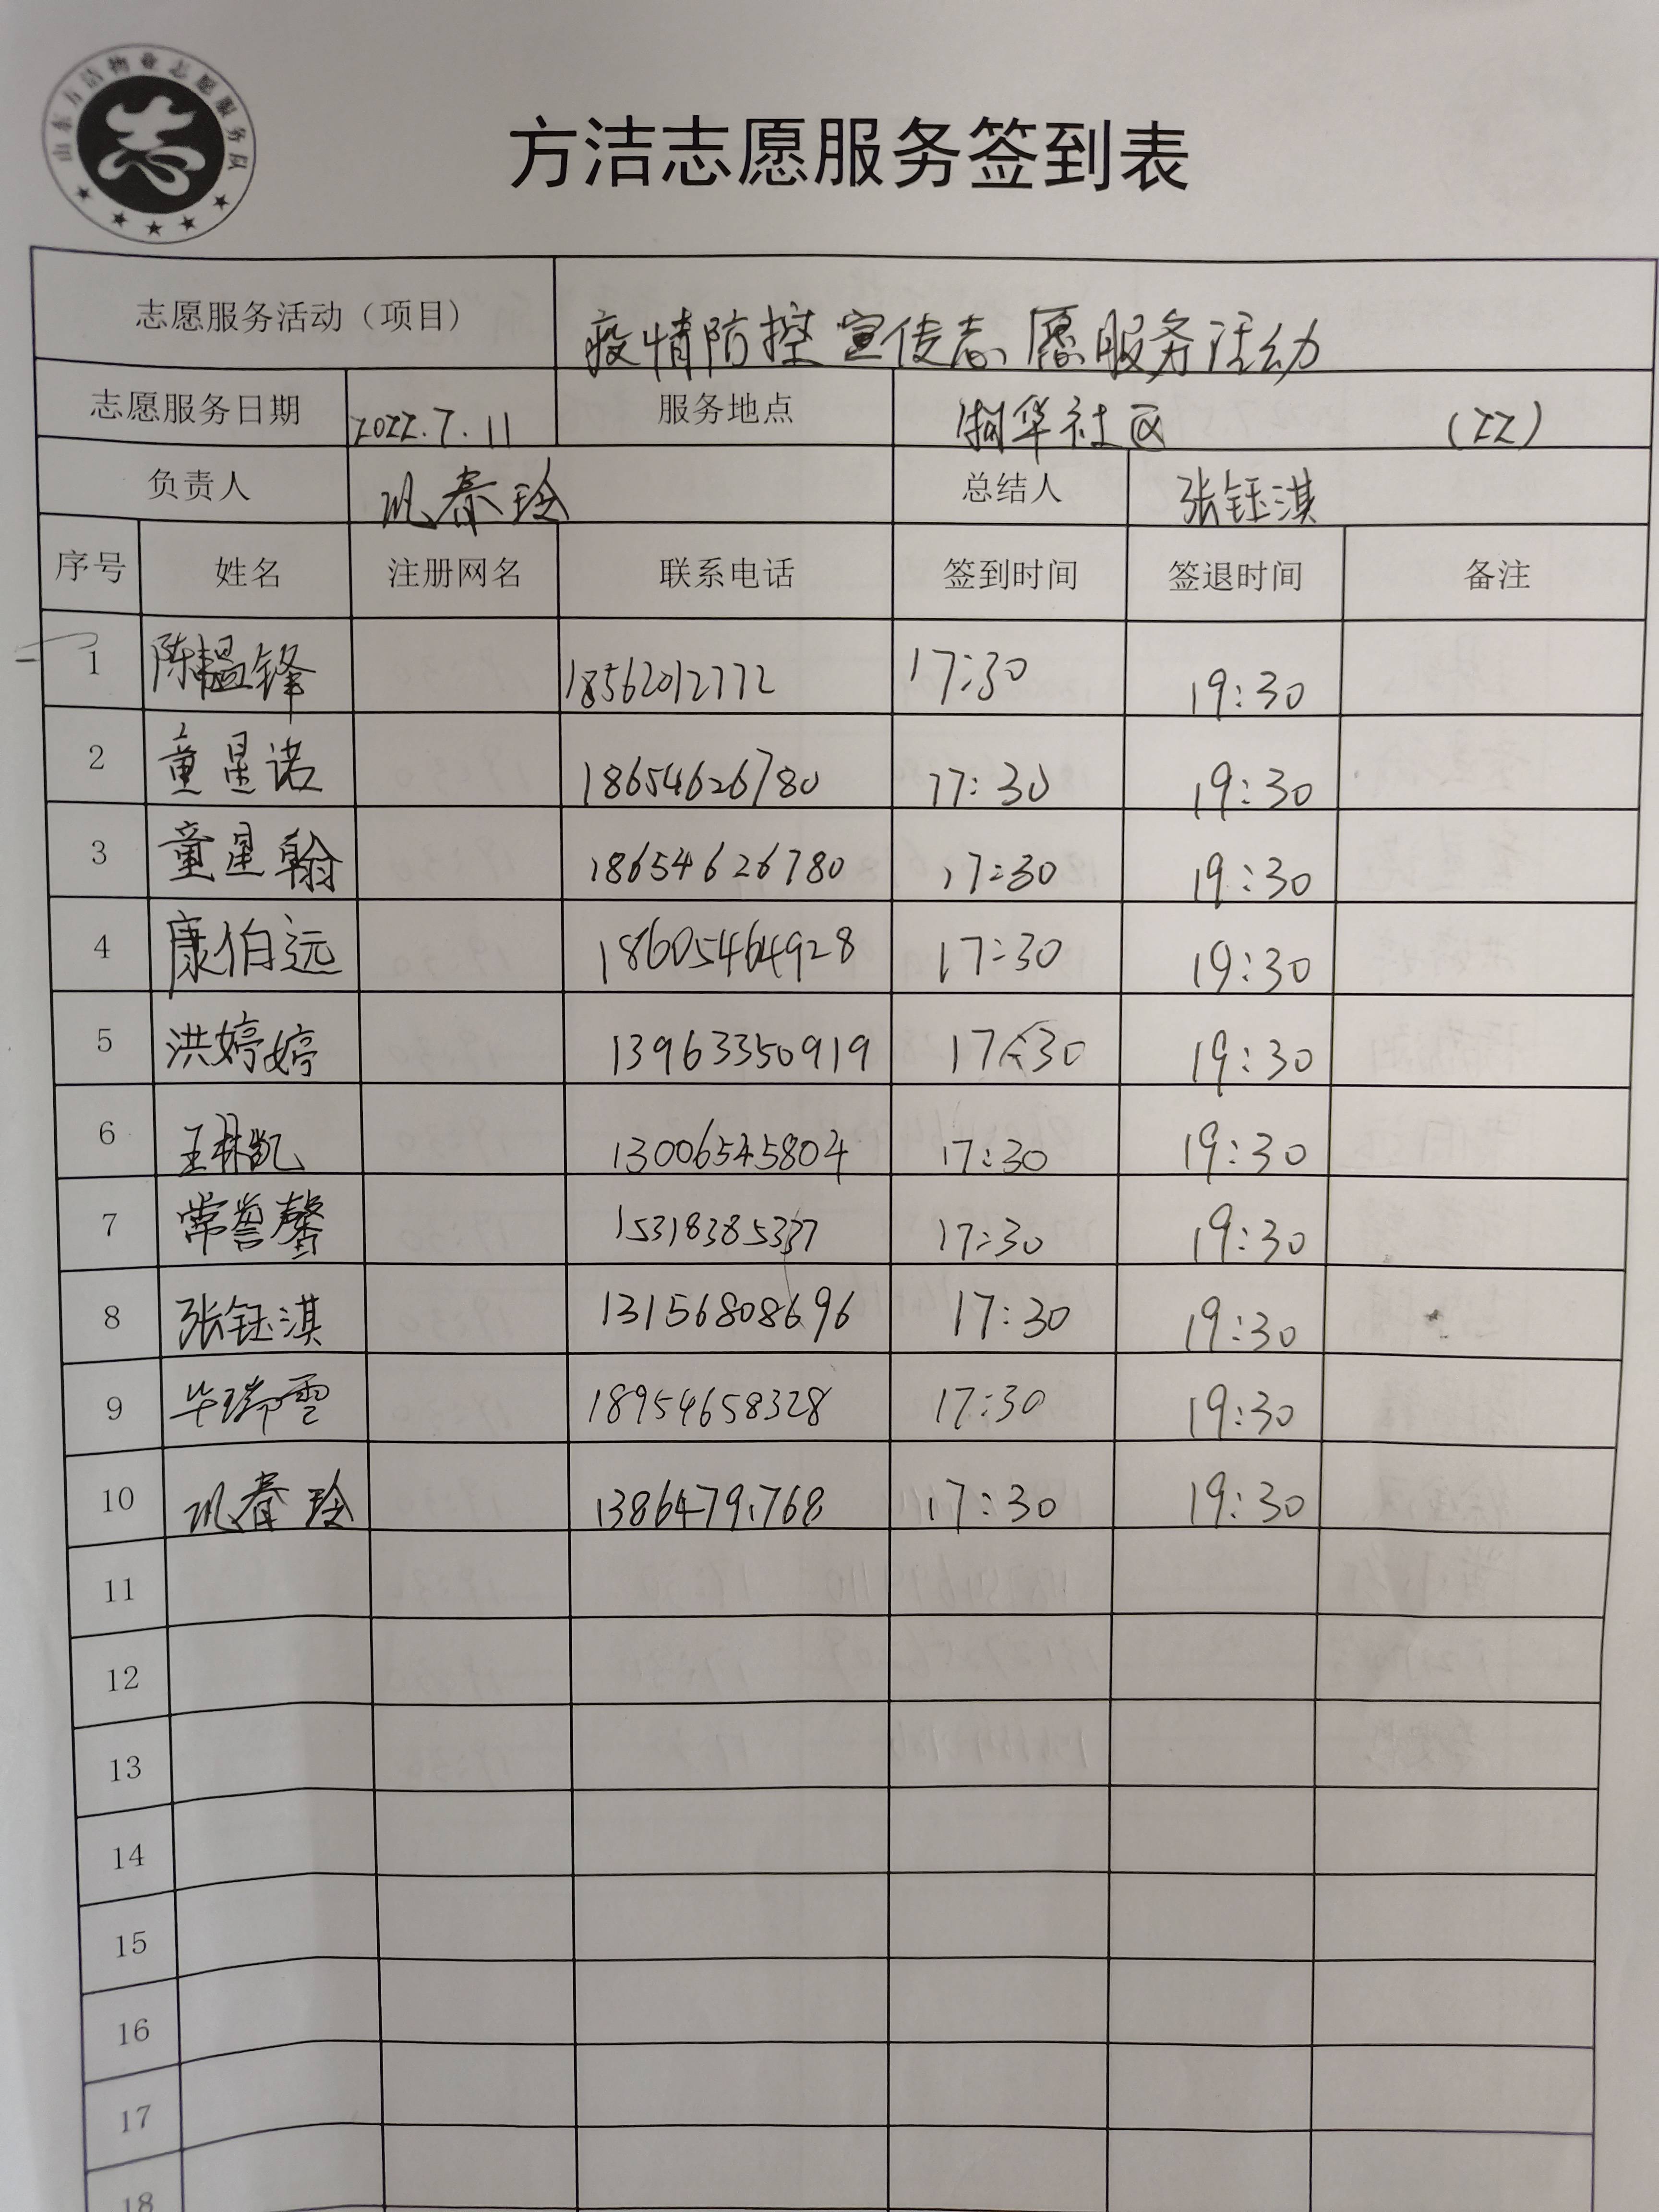 山东方洁物业志愿服务队
志
方洁志愿服务签到表
志愿服务活动（项目） 疫情防控宣传志愿服务活动
志愿服务日期 2022.7.11 服务地点 淅华社区 (22)
负责人 巩春玲 总结人 张钰淇
序号 姓名 注册网名 联系电话 签到时间 签退时间 备注
1 陈韫锋 18562012772 17:30 19:30
2 童星诺 18654626780 17:30 19:30
3 童星翰 18654626780 17:30 19:30
4 康伯远 18605464928 17:30 19:30
5 洪婷婷 13963350919 17:30 19:30
6 王林凯 13006545804 17:30 19:30
7 常誉馨 15318385337 17:30 19:30
8 张钰淇 13156808696 17:30 19:30
9 毕瑞雪 18954658328 17:30 19:30
10 巩春玲 13864791768 17:30 19:30
11
12
13
14
15
16
17
18